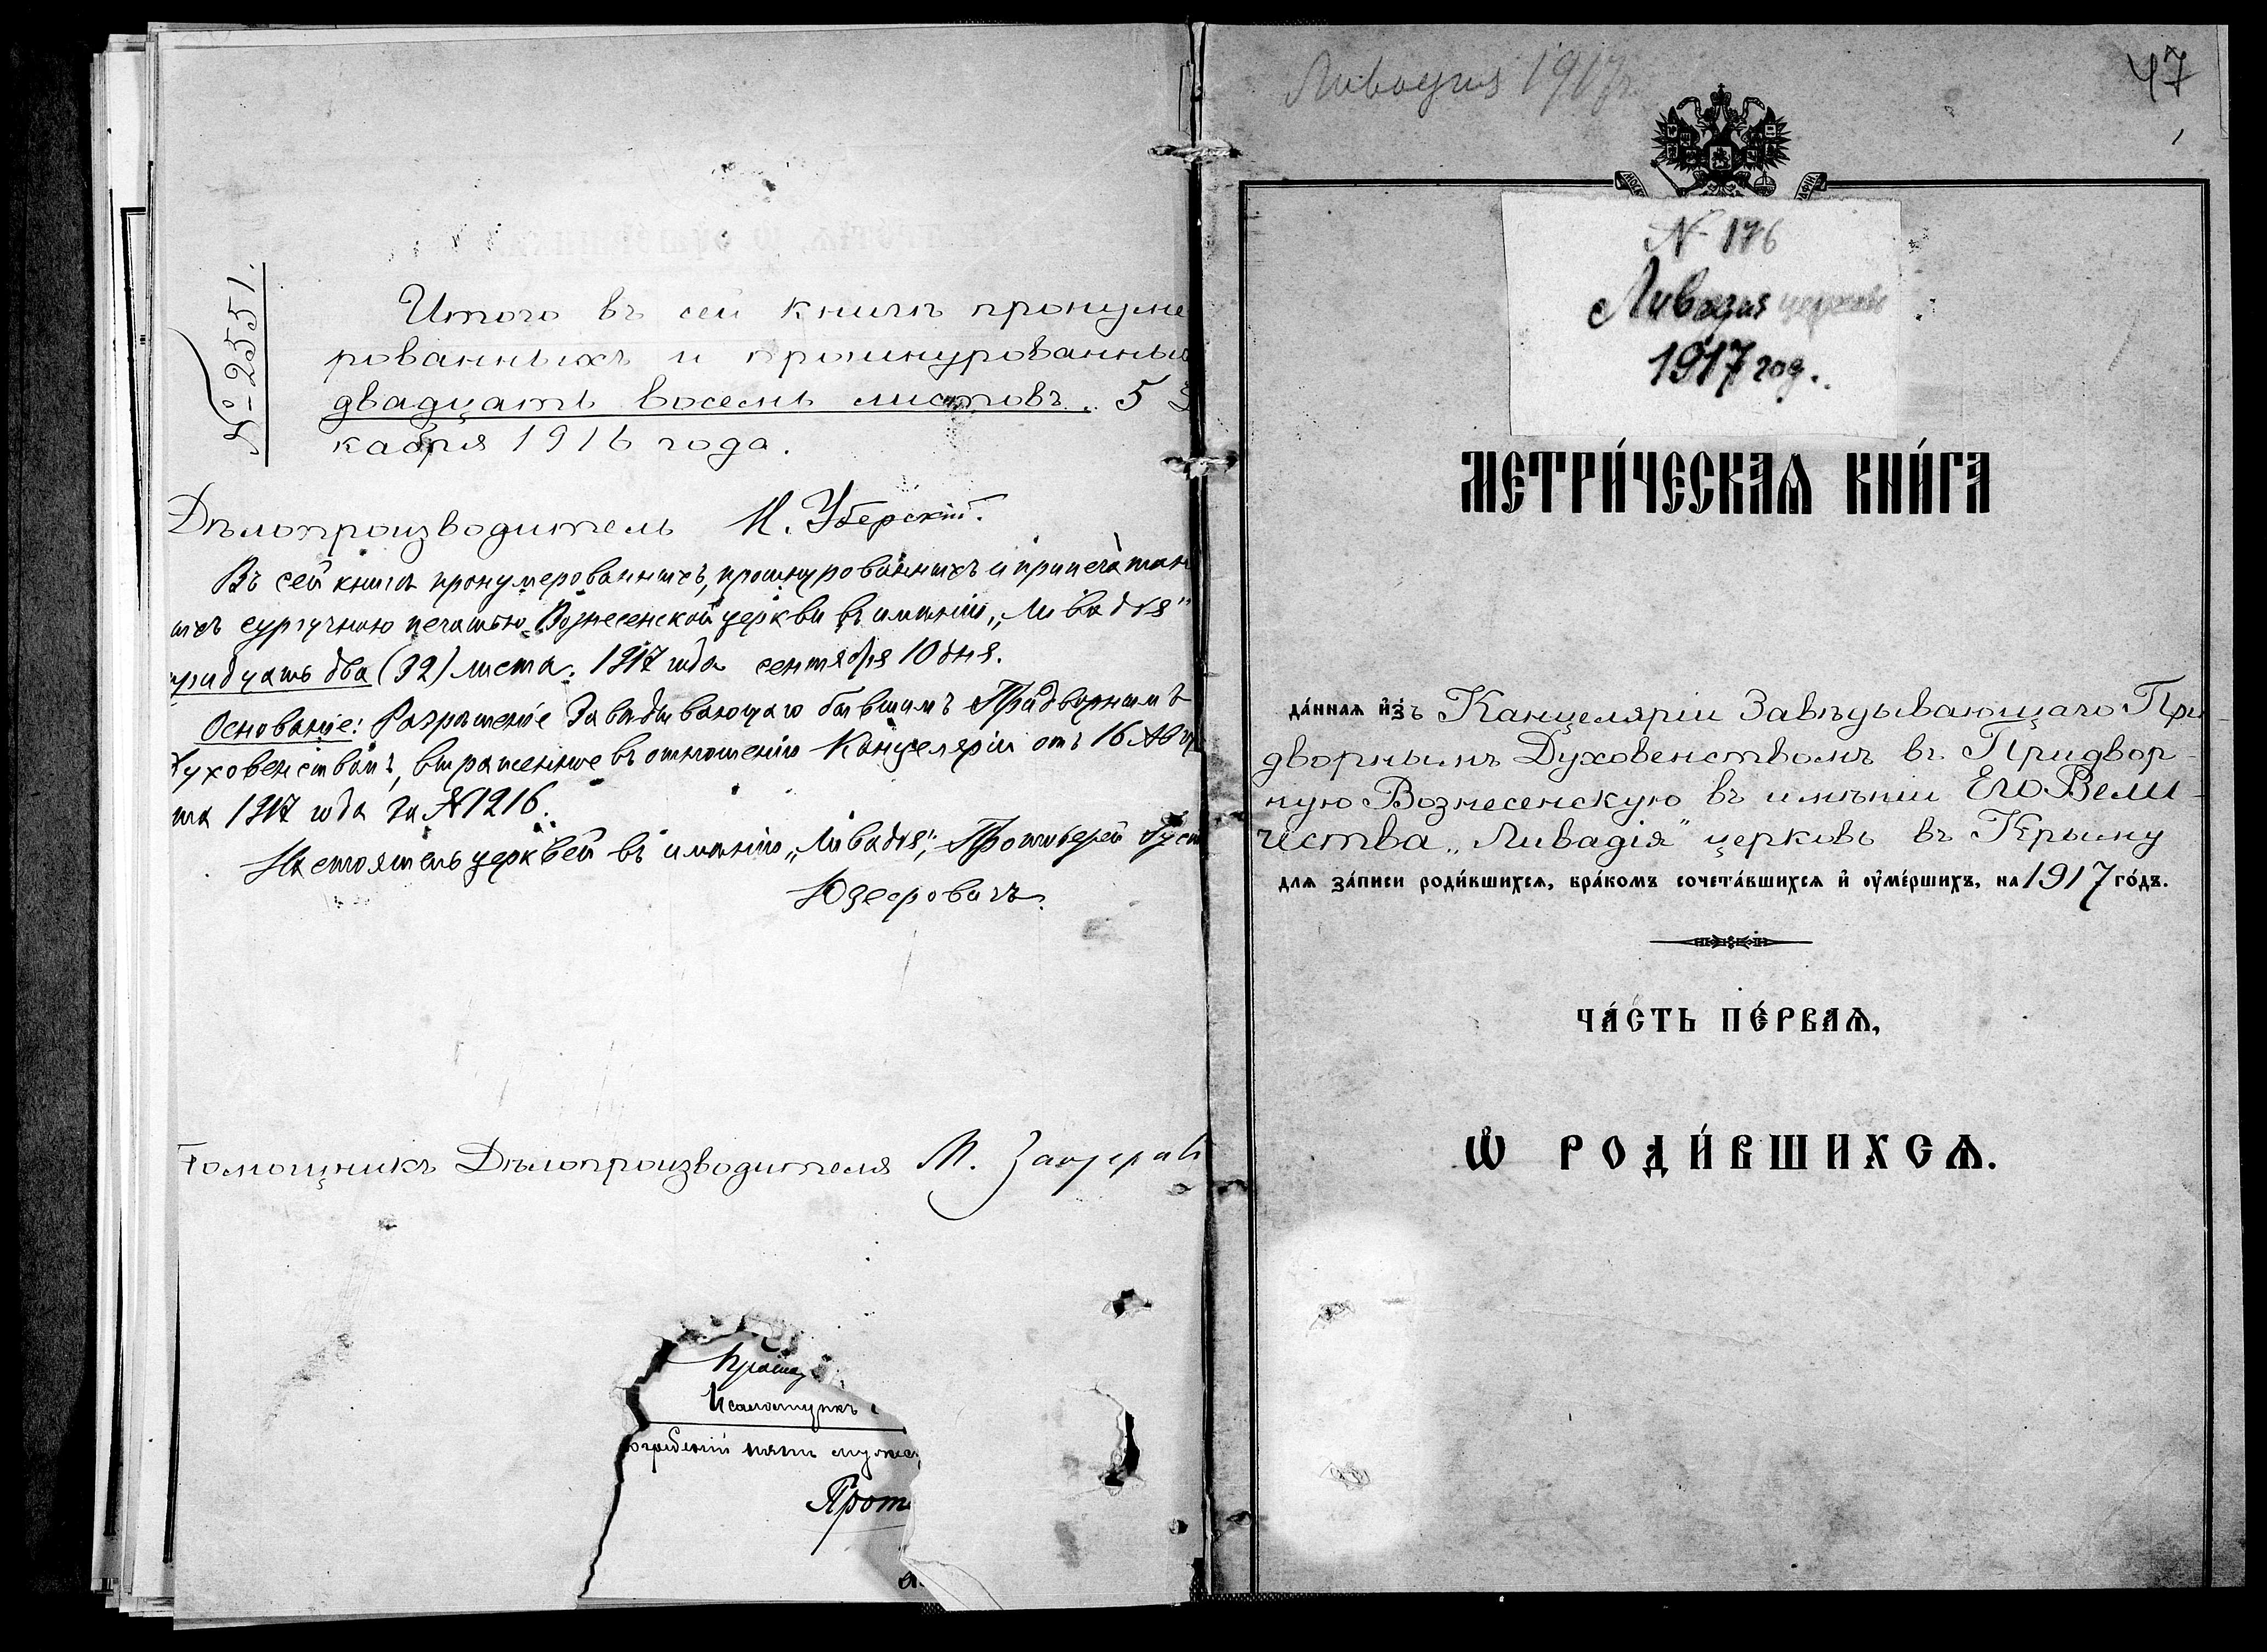 № 2551.
Итого въ сей книгѣ пронуме
рованныхъ и прошнурованных
двадцать восемь листовъ. 5
кабря 1916 года.
Дѣлопроизводитель
Въ сей книгѣ пронумерованныхъ, прошнурованныхъ и припечатан
ыхъ сургучною печатью Вознесенской церкви въ имѣніи „Ливадія“
тридцать два (32) листа. 1917 года сентября 10 дня.
Основаніе: Разрѣшеніе Завѣдывающаго бывшимъ Придворнымъ
Духовенствомъ, выраженное въ отношеніи Канцеляріи отъ 16 Авгу
ста 1917 года за № 1216.
Настоятель церквей въ имѣніи „Ливадія“, Протоіерей
Помощникъ Дѣлопроизводителя М.
Псаломщикъ
погребеній пять мужес
Прот
Ливадия 1917
47
№ 176
Ливадия церковь
1917 год.
МЕТРИ́ЧЕСКАѦ КНИ́ГА
да́нная и҆зъ Канцеляріи Завѣдывающаго При-
дворнымъ Духовенствомъ въ Придвор-
ную Вознесенскую въ имѣніи Его Вели-
чества „Ливадія“ церковь въ Крыму
для за́писи роди́вшихсѧ, бра́комъ сочета́вшихсѧ и҆ оу҆ме́ршихъ, на 1917 го́дъ.
ЧА́СТЬ ПЕ́РВАѦ,
Ѡ҆ РОДИ́ВШИХСѦ.